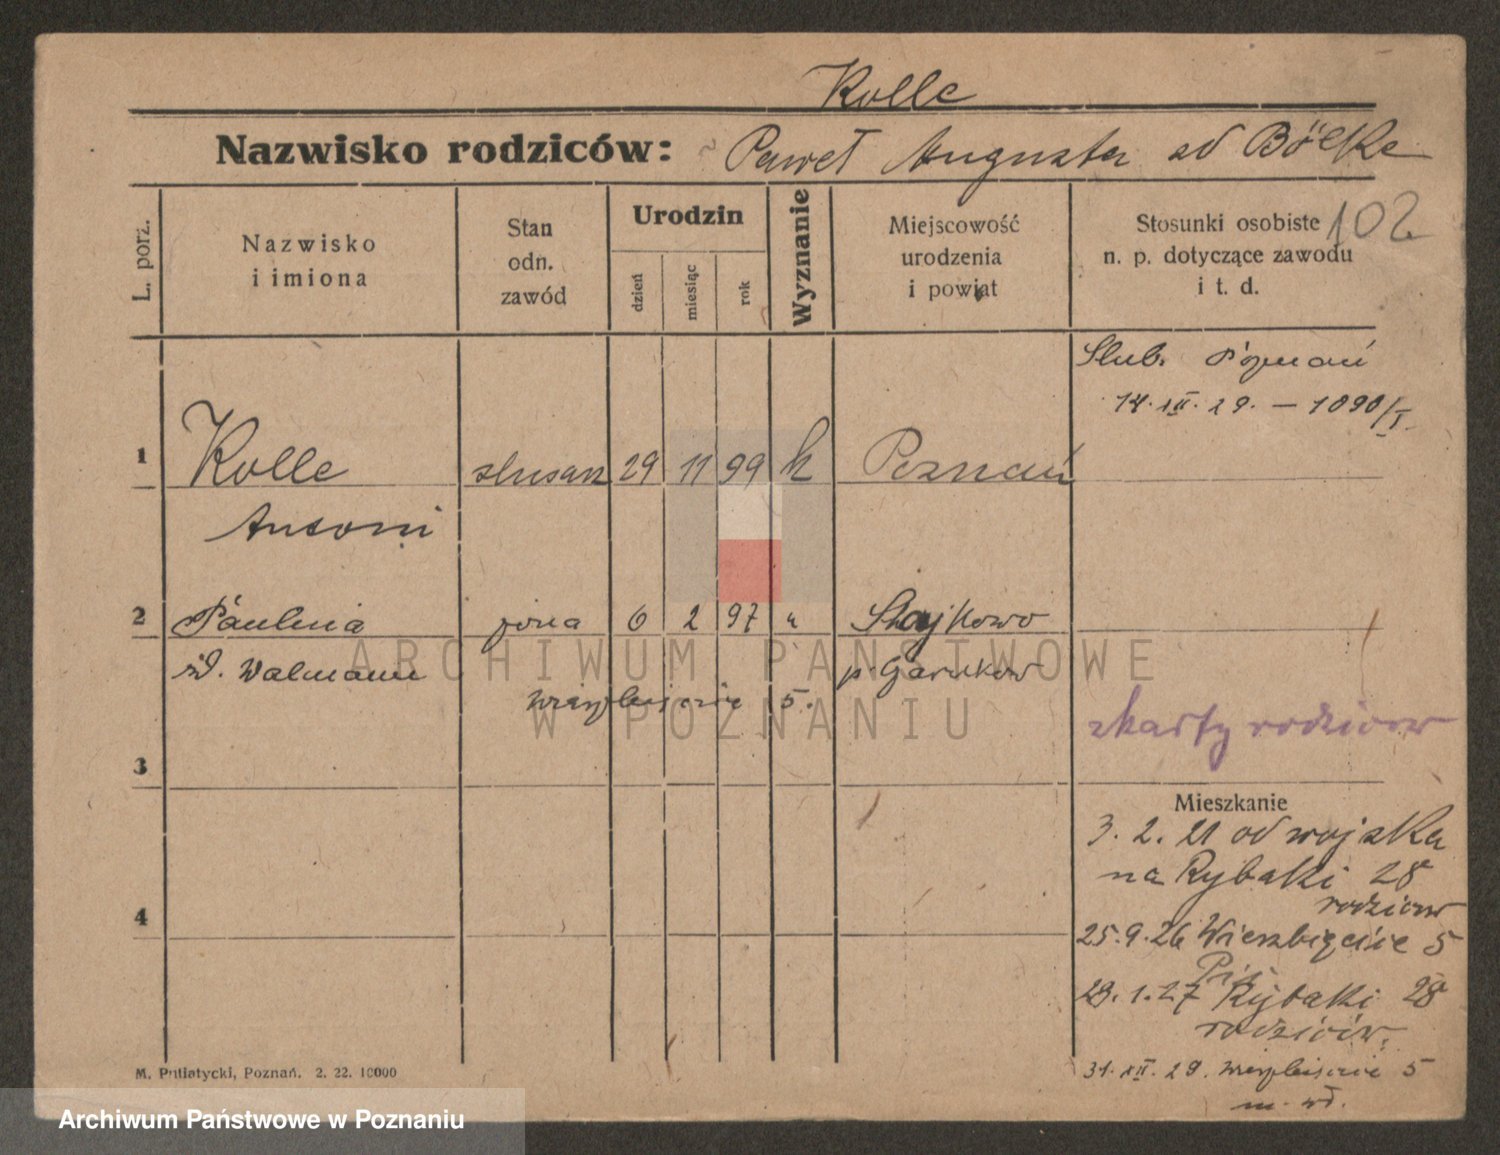 Kolle
Nazwisko rodziców: Paweł Augusta zd Bölke
L. porz.
Nazwisko
i imiona
Stan
odn.
zawód
Urodzin
dzień
miesiąc
rok
Wyznanie
Miejscowość
urodzenia
i powiat
Stosunki osobiste
n. p. dotyczące zawodu
i t. d.
102
Slub. Poznań
14. XII. 29. — 1090/I.
1 Kolle ślusarz 29 11 99 k Poznań
Antoni
2 Paulina żona 6 2 97 "
zd. Walmann p. Czarnków
Wierzbięcice 5.
ARCHIWUM PAŃSTWOWE
W POZNANIU
z karty rodziców
3
Mieszkanie
3. 2. 21 od wojska
na Rybaki 28
rodziców
4
25. 9. 26 Wierzbięcice 5
28. 1. 27 Rybaki 28
rodziców.
31. XII. 29. Wierzbięcice 5
M. Putiatycki, Poznań. 2. 22. 10000
Archiwum Państwowe w Poznaniu